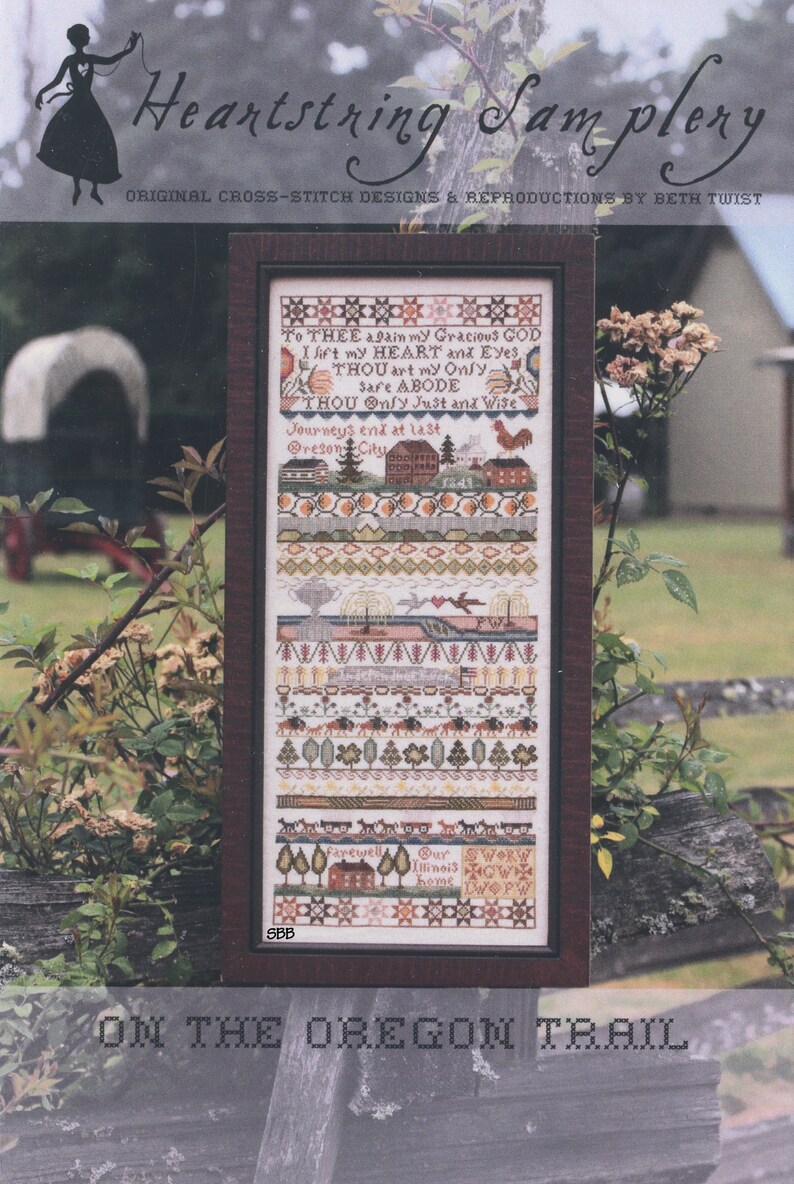 Heartstring Samplery
ORIGINAL CROSS-STITCH DESIGNS & REPRODUCTIONS BY BETH TWIST
To THEE again my Gracious GOD
I lift my HEART and Eyes
THOU art my Only
safe ABODE
THOU Only Just and Wise
Journeys end at last
Oregon City
farewell
Our
Illinois
home
SBB
ON THE OREGON TRAIL